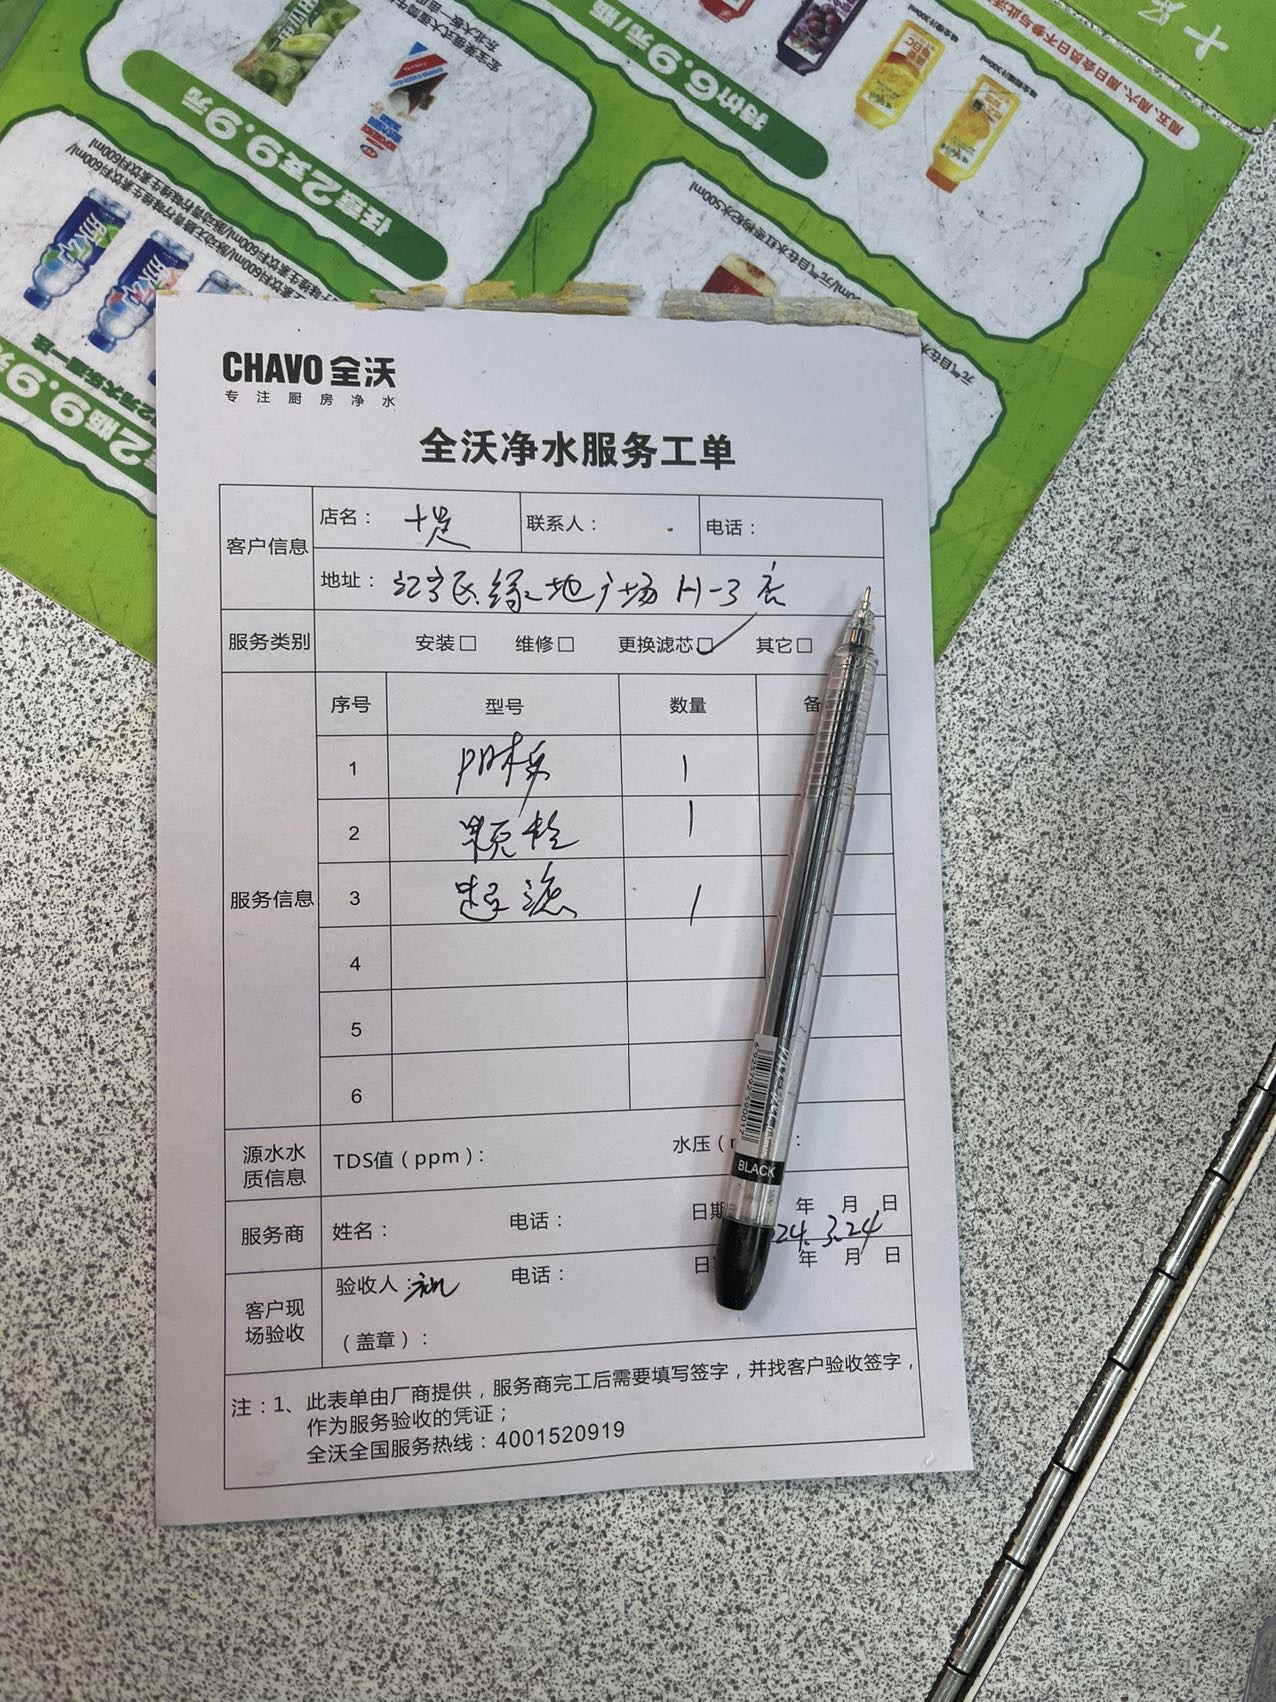 周五、周六、周日会员日不参与此活
特价6.9元/瓶
任意2支9.9元
CHAVO 全沃
专注厨房净水
全沃净水服务工单
客户信息
店名： 十足
联系人：
电话：
地址： 江宁区绿地广场 H-3 店
服务类别
安装□ 维修□ 更换滤芯□ 其它□
服务信息
序号 型号 数量 备
1 阻垢 1
2 颗粒 1
3 超滤 1
4
5
6
源水水质信息
TDS值（ppm）：
水压（
服务商
姓名： 电话： 日期 年 月 日
24.3.24
客户现场验收
验收人： 电话： 日 年 月 日
（盖章）：
注：1、此表单由厂商提供，服务商完工后需要填写签字，并找客户验收签字，
作为服务验收的凭证；
全沃全国服务热线：4001520919
BLACK